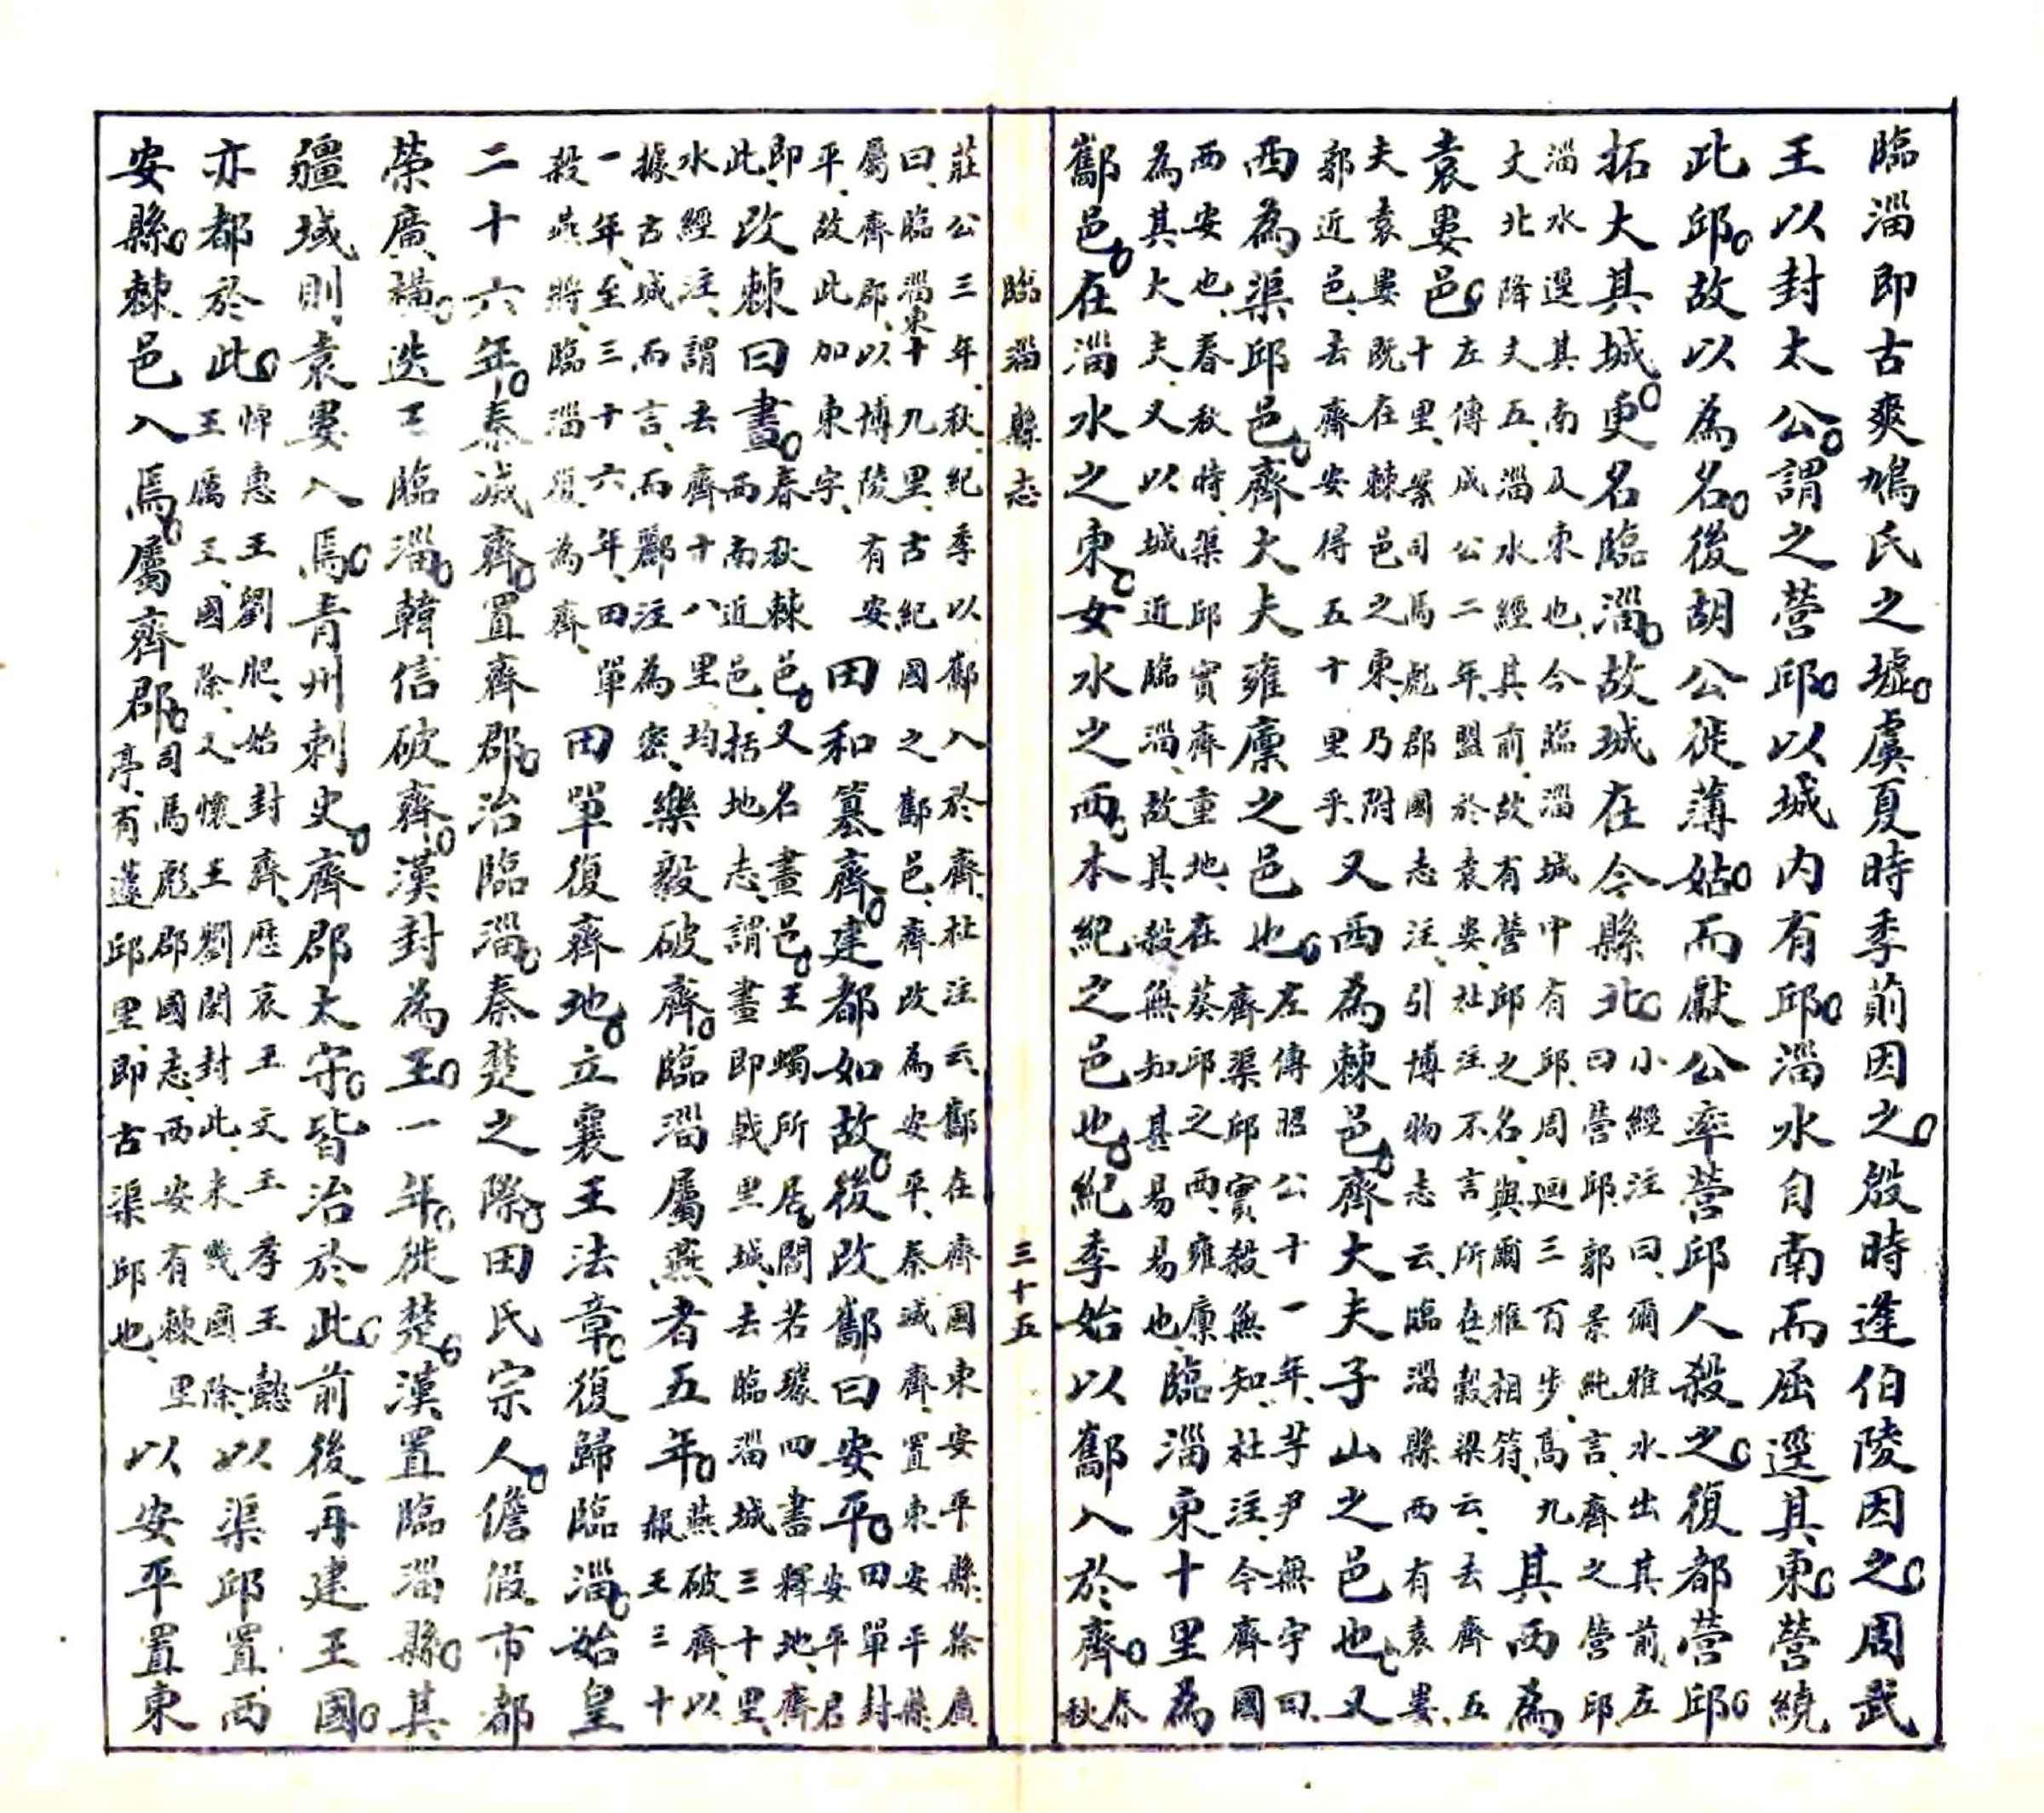 臨淄即古爽鳩氏之墟。虞夏時季萴因之。殷時逢伯陵因之。周武
王以封太公。謂之營邱。以城内有邱。淄水自南而屈逕其東。營繞
此邱。故以為名。後胡公徙薄姑。而獻公率營邱人殺之。復都營邱。
拓大其城。更名臨淄。故城在今縣北。
小經注曰、爾雅水出其前左
曰營邱郭景純言、齊之營邱
淄水逕其南及東也、今臨淄城中有邱、周迴三百步、高九
丈北降丈五、淄水經其前、故有營邱之名、與爾雅相符、
其西為
袁婁邑。
左傳成公二年、盟於袁婁、杜注不言所在、穀梁云、去齊五
十里、案司馬彪郡國志注、引博物志云、臨淄縣西有袁婁、
夫袁婁既在棘邑之東、乃附
郭近邑、去齊安得五十里乎、
又西為棘邑。齊大夫子山之邑也。又
西為渠邱邑。齊大夫雍廩之邑也。
左傳昭公十一年、芋尹無宇曰、
齊渠邱實殺無知、杜注、今齊國
西安也、春秋時、渠邱實齊重地、在葵邱之西、雍廩
為其大夫、又以城近臨淄、故其殺無知甚易易也、
臨淄東十里為
酅邑。在淄水之東。女水之西。本紀之邑也。紀季始以酅入於齊。
春
秋
臨淄縣志
三十五
莊公三年、秋、紀季以酅入於齊、杜注云、酅在齊國東安平縣、徐廣
曰、臨淄東十九里、古紀國之酅邑、齊改為安平、秦滅齊、置東安平縣
屬齊郡、以博陵有安
平、故此加東字、
田和篡齊。建都如故。後改酅曰安平。
田單封
安平君
即
此、
改棘曰畫。
春秋棘邑。又名畫邑。王蠋所居、閻若璩四書釋地、齊
西南近邑、括地志、謂畫即戟里城、去臨淄城三十里、
水經注、謂去齊十八里、均
據古城而言、而酈注為密、
樂毅破齊。臨淄屬燕者五年。
燕破齊、以
赧王三十
一年、至三十六年、田單
殺燕將、臨淄復為齊、
田單復齊地。立襄王法章。復歸臨淄。始皇
二十六年。秦滅齊。置齊郡。治臨淄。秦楚之際。田氏宗人。儋假市都
榮廣、橫。迭王臨淄。韓信破齊。漢封為王。一年。徙楚。漢置臨淄縣。其
疆域則袁婁入焉。青州刺史。齊郡太守。皆治於此。前後再建王國。
亦都於此。
悼惠王劉肥、始封齊、歷哀王文王孝王懿
王厲王、國除、又懷王劉閎封此、未幾國除、
以渠邱置西
安縣。棘邑入焉。屬齊郡。
司馬彪郡國志、西安有棘里
亭、有蘧邱里、即古渠邱也、
以安平置東